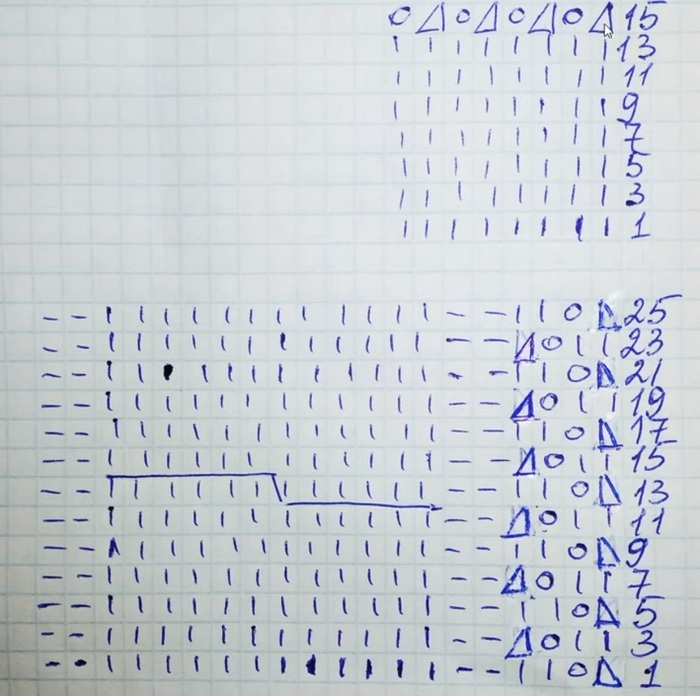 o △ o △ o △ o △ 15
| | | | | | | | 13
| | | | | | | | 11
| | | | | | | | 9
| | | | | | | | 7
| | | | | | | | 5
| | | | | | | | 3
| | | | | | | | 1
- - | | | | | | | | | | | | - - | | o △ 25
- - | | | | | | | | | | | | - - △ o | | 23
- - | | | | | | | | | | | | - - | | o △ 21
- - | | | | | | | | | | | | - - △ o | | 19
- - | | | | | | | | | | | | - - | | o △ 17
- - | | | | | | | | | | | | - - △ o | | 15
- - | | | | | | | | | | | | - - | | o △ 13
- - | | | | | | | | | | | | - - △ o | | 11
- - | | | | | | | | | | | | - - | | o △ 9
- - | | | | | | | | | | | | - - △ o | | 7
- - | | | | | | | | | | | | - - | | o △ 5
- - | | | | | | | | | | | | - - △ o | | 3
- - | | | | | | | | | | | | - - | | o △ 1